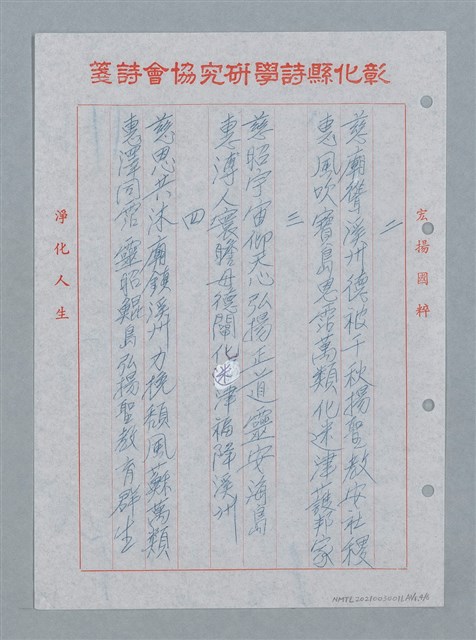 彰化縣詩學研究協會詩箋
宏揚國粹
二
慈廟聳溪州德被千秋揚聖教安社稷
惠風吹寶島恩霑萬類化迷津護邦家
三
慈昭宇宙仰天心弘揚正道靈安海島
惠溥人寰瞻母德闡化迷津福降溪州
四
慈恩共沐廟鎮溪州力挽頹風蘇萬類
惠澤同霑靈昭鯤島弘揚聖教育群生
淨化人生